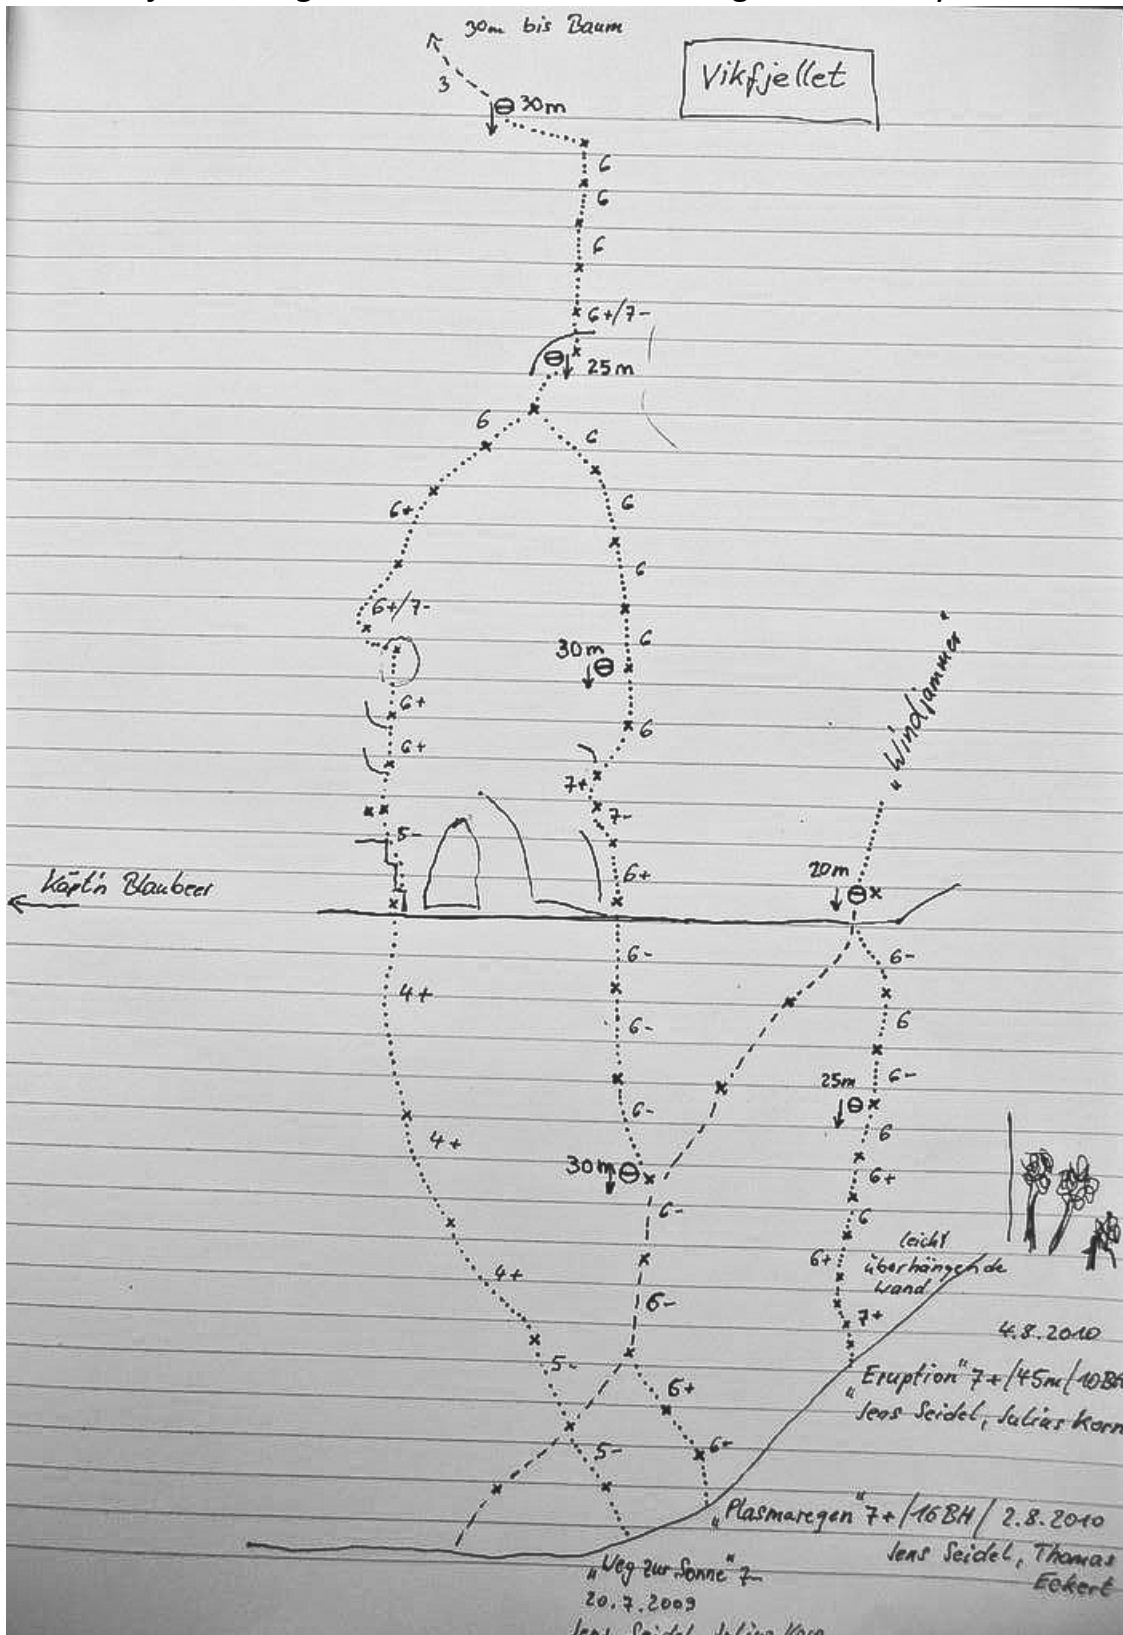 30m bis Baum
Vikfjellet
3
30m
6
6
6
6+/7-
25m
6
6
6+
6
6
6+/7-
30m
6
6+
6
6+
7+
7-
"Windjammer"
5-
6+
20m
Käpt'n Blaubeer
6-
4+
6
6-
25m
6-
6-
4+
6
30m
6+
6-
6
leicht
überhängende
Wand
6+
4+
6-
7+
4.8.2010
5-
"Eruption" 7+/45m/10BH
Jens Seidel, Julius Korn
6+
5-
6-
"Plasmaregen" 7+/16BH/ 2.8.2010
Jens Seidel, Thomas
Eckert
"Weg zur Sonne" 7-
20.7.2009
Jens Seidel, Julius Korn